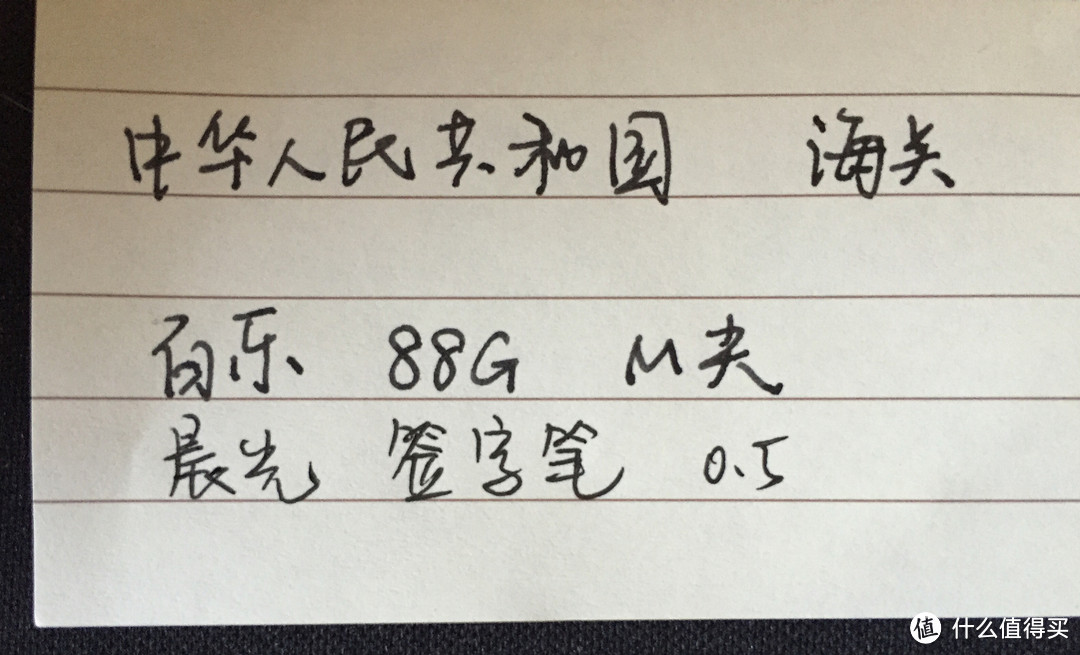 中华人民共和国 海关
百乐 88G M尖
晨光 签字笔 0.5
值 什么值得买